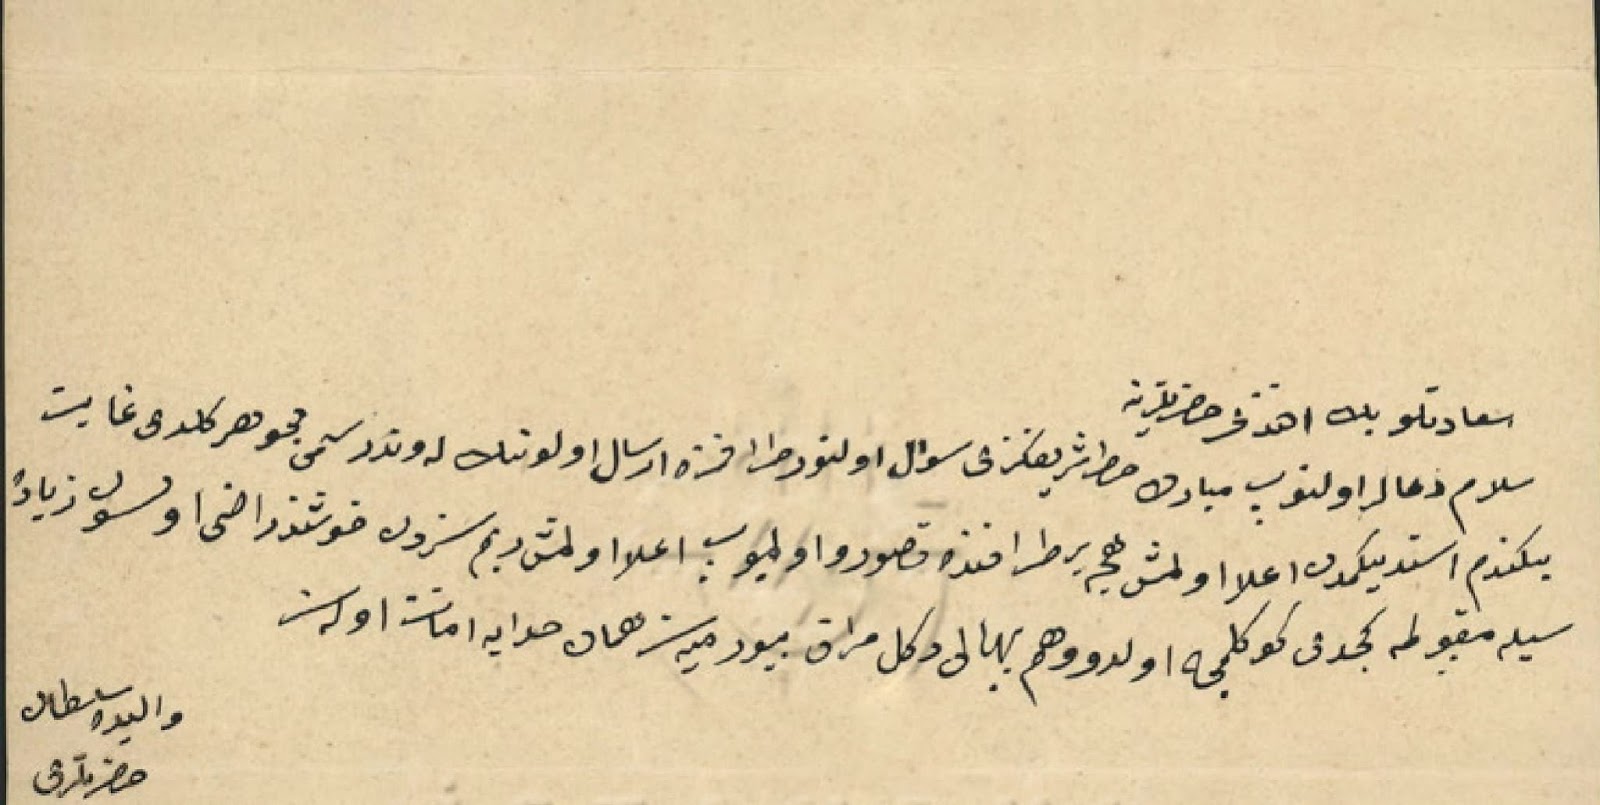 سعادتلو بك افندی حضرتلرینه
سلام دعالر اولنوب مبارك خاطر شریفكزی سؤال اولنور طرافزه ارسال اولونان لوندر رسمی مجوهر كلدی غایت
بكندم استدیكمدن اعلا اولمش هیچ بر طرافنده قصورو اولمیوب اعلا اولمش دیم سزدن خوشنود راضی اولسون زیاده
سیله مقبوطه كچدی كوكلمجه اولدو وهم بهالی دكل مراق بیورمیه سز همان خدایه امانت اوله سز
والیده سلطان
حضرتلری